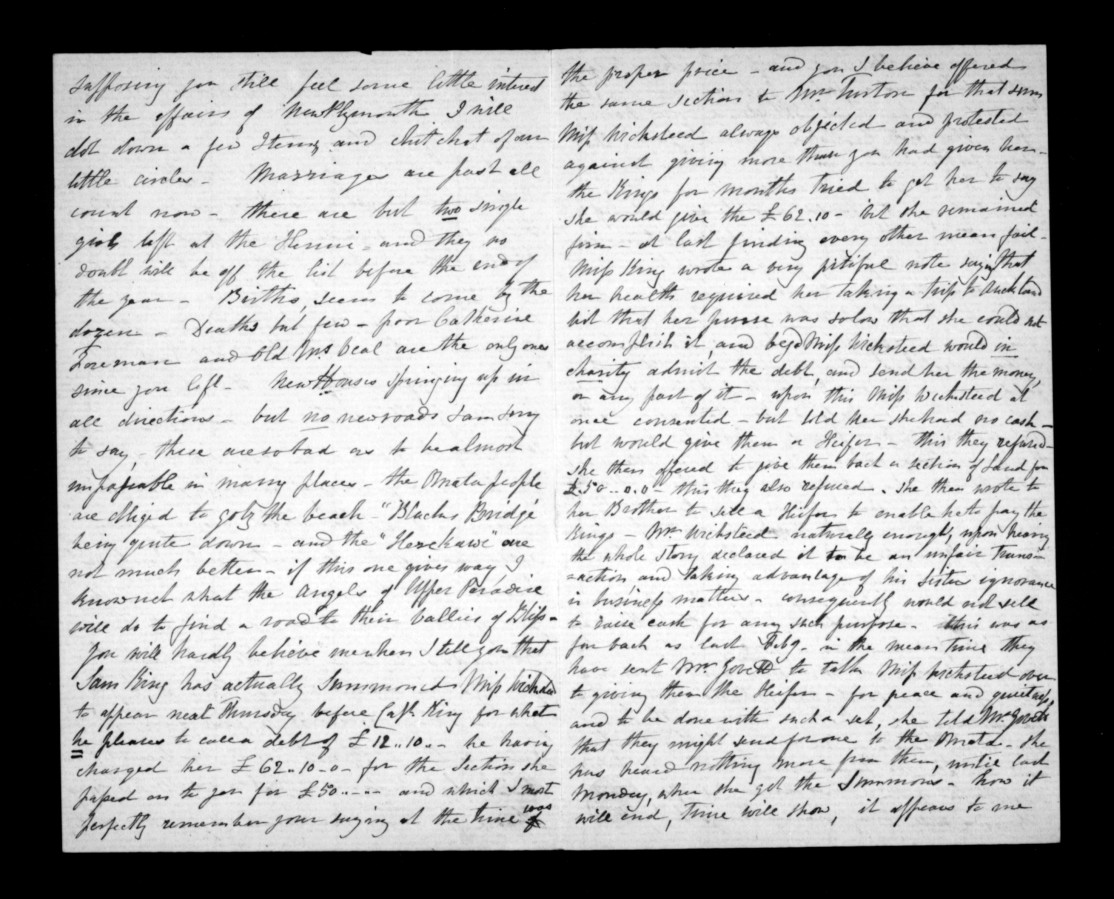 supposing you still feel some little interest
in the affairs of New Plymouth I will
dot down a few Items and chit chat of our
little circles - Marriages are past all
count now - there are but two single
girls left at the Henui - and they no
doubt will be off the list before the end of
the year - Births, seem to come by the
dozen - Deaths but few - poor Catherine
and Old Mrs Veal are the only ones
since you left - New Houses springing up in
all directions - but no new roads I am sorry
to say - these are so bad as to be almost
impassable in many places - the Omata people
are obliged to go by the beach - "Blacks Bridge"
being quite down - and the "Herekawe" are
not much better - if this one gives way I
know not what the angels of Upper Paradise
will do to find a road to their vallies of Bliss -
You will hardly believe me when I tell you that
Sam King has actually Summoned Miss Wicksteed
to appear next Thursday before Capt King for what
he pleases to call a debt of £12..10..- he having
charged her £62..10-0- for the Section she
passed on to you for £50..-..- and which I most
perfectly remember your saying at the time was
the proper price - and you I believe offered
the same section to Mr Turton for that sum
Miss Wicksteed always objected and protested
against giving more than you had given her -
the Kings for months tried to get her to say
she would give the £62.10 - but she remained
firm - at last finding every other mean fail -
Miss King wrote a very pitiful note saying that
her health required her taking a trip to Auckland
but that her purse was so low that she could not
accomplish it, and begd Miss Wicksteed would in
charity admit the debt, and send her the money,
or any part of it - upon this Miss Wicksteed at
once consented - but told her she had no cash -
but would give them a Heifer - this they refused -
she then offered to give them back a section of Land for
£50..0.0 - this they also refused. She then wrote to
her Brother to sell a Heifer to enable her to pay the
Kings - Mr Wicksteed naturally enough, upon hearing
the whole story declared it to be an unfair trans-
=action, and taking advantage of his Sisters ignorance
in business matters - consequently would not sell
to raise cash for any such purpose - this was as
far back as last Feby - in the mean time they
have sent Mr to talk Miss Wicksteed over
to giving them the Heifer - for peace and quietness,
and to be done with such a set, she told Mr
that they might send for one to the Omata. She
has heard nothing more from them, until last
Monday, when she got the Summons - how it
will end, time will show, it appears to me